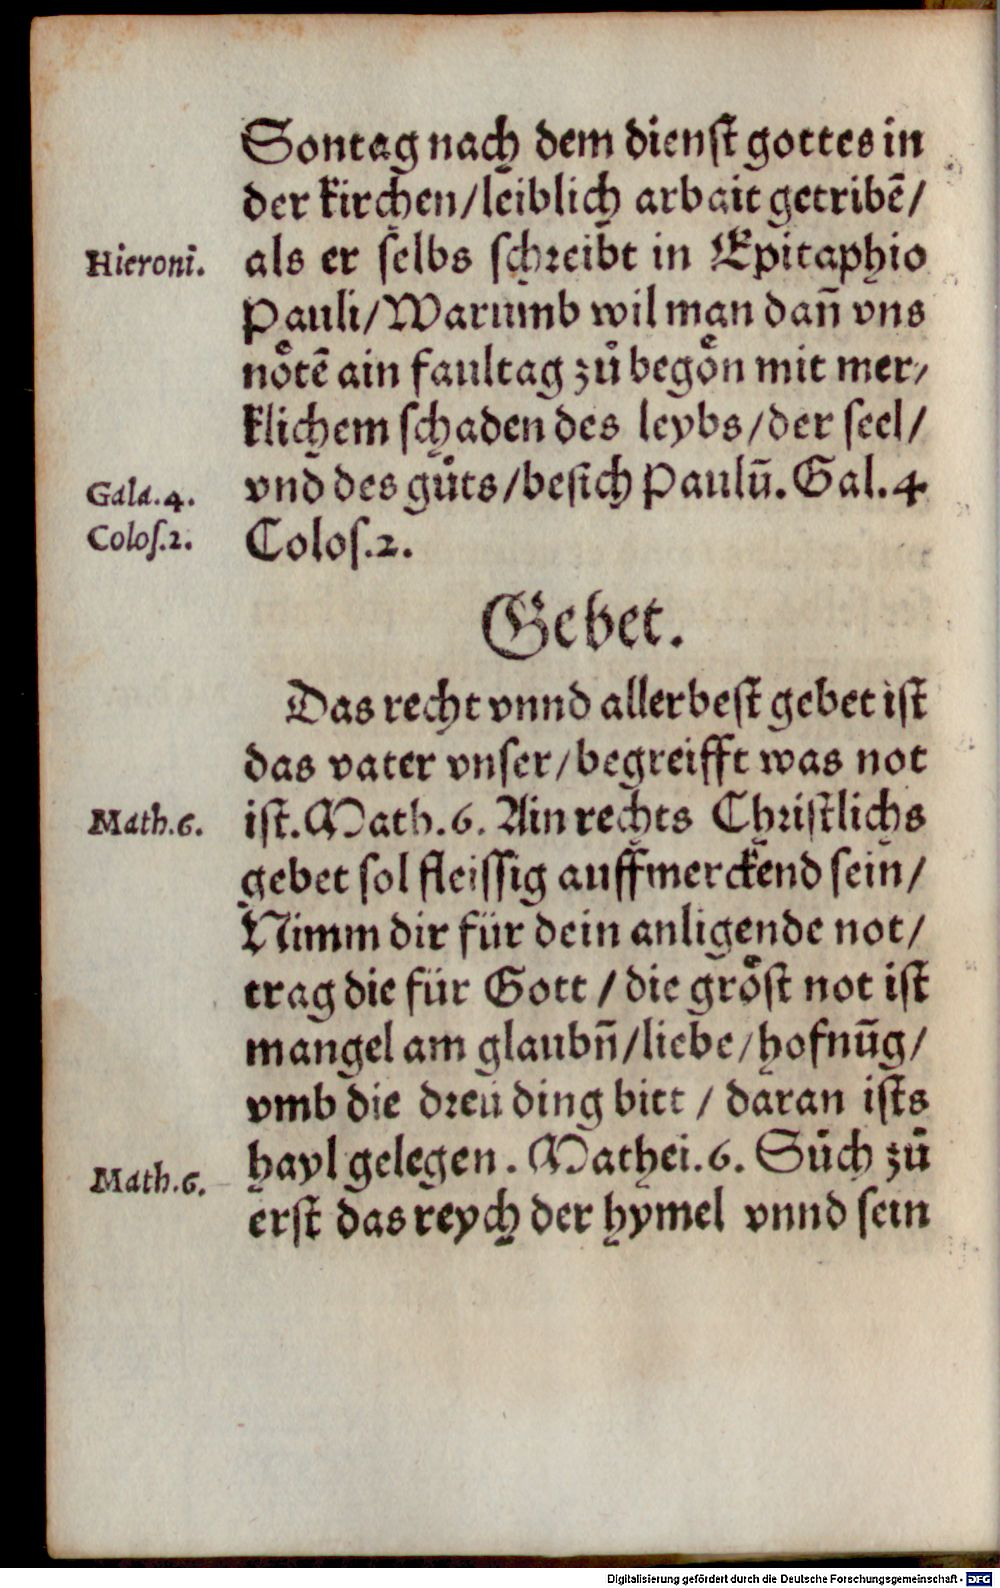 Sontag nach dem dienst gottes in
der kirchen/leiblich arbait getribē/
Hieroni. als er selbs schreibt in Epitaphio
Pauli/Warumb wil man dañ vns
nötē ain faultag zů begön mit mer/
klichem schaden des leybs/der seel/
Gala.4. vnd des gůts/besich Paulū. Gal.4
Colos.2. Colos.2.
Gebet.
Das recht vnnd allerbest gebet ist
das vater vnser/begreifft was not
Math.6. ist. Math.6. Ain rechts Christlichs
gebet sol fleissig auffmerckend sein/
Nimm dir für dein anligende not/
trag die für Gott/die gröst not ist
mangel am glaubñ/liebe/hofnūg/
vmb die dreü ding bitt/daran ists
hayl gelegen. Mathei.6. Sůch zů
Math.6. erst das reych der hymel vnnd sein
Digitalisierung gefördert durch die Deutsche Forschungsgemeinschaft - DFG